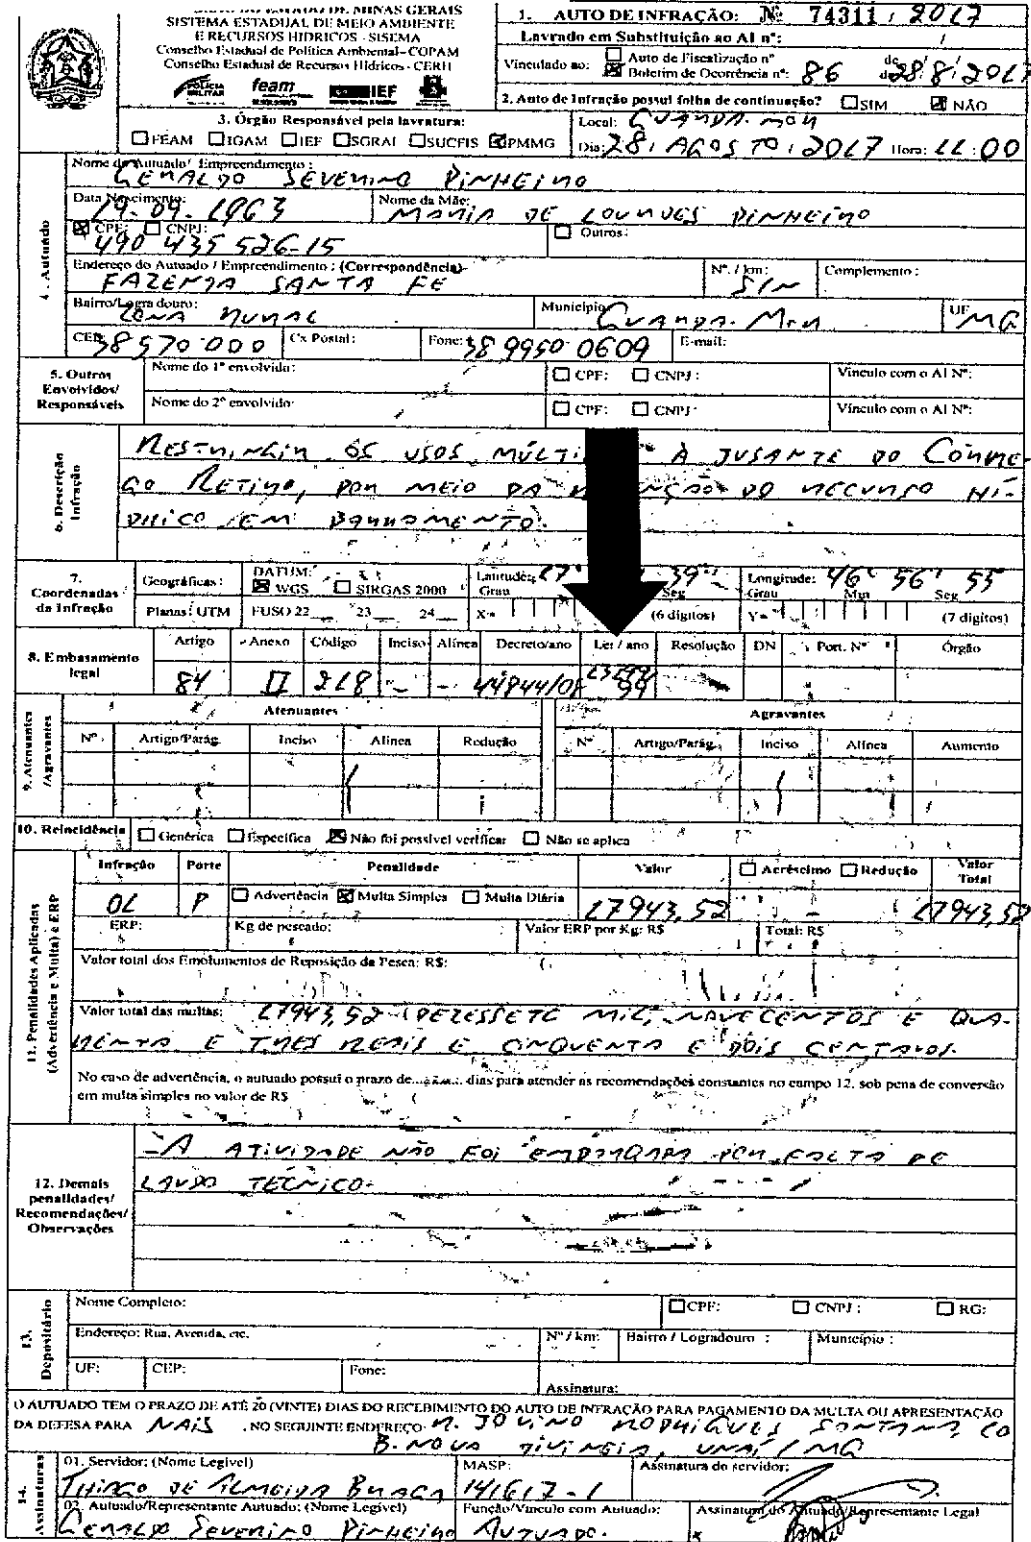 MINAS GERAIS
SISTEMA ESTADUAL DE MEIO AMBIENTE
E RECURSOS HIDRICOS - SISEMA
Conselho Estadual de Política Ambiental - COPAM
Conselho Estadual de Recursos Hídricos - CERH
POLÍCIA MILITAR feam IEF
1. AUTO DE INFRAÇÃO: Nº 74311 / 2017
Lavrado em Substituição ao AI nº: /
Vinculado ao: Auto de Fiscalização nº de
Boletim de Ocorrência nº: 86 de 28/8/2017
2. Auto de Infração possui folha de continuação? SIM NÃO
3. Órgão Responsável pela lavratura:
FEAM IGAM IEF SGRAI SUCFIS PMMG
Local: GUARDA-MOR
Dia: 28, AGOSTO, 2017 Hora: 11:00
4. Autuado
Nome do Autuado/ Empreendimento:
GERALDO SEVERINO PINHEIRO
Data Nascimento: 19-09-1963
Nome da Mãe: MARIA DE LOURDES PINHEIRO
CPF: CNPJ: 490 435 526-15
Outros:
Endereço do Autuado / Empreendimento : (Correspondência)
FAZENDA SANTA FE
Nº. / km: S/N
Complemento :
Bairro/Logradouro: ZONA RURAL
Município GUARDA-MOR
UF MG
CEP 38570-000
Cx Postal:
Fone: 38 9950-0609
E-mail:
5. Outros Envolvidos/ Responsáveis
Nome do 1º envolvido: CPF: CNPJ: Vínculo com o AI Nº:
Nome do 2º envolvido: CPF: CNPJ: Vínculo com o AI Nº:
6. Descrição Infração
RESTRINGIR OS USOS À JUSANTE DO CÓRRE-
GO RETIRO, POR MEIO DA DO RECURSO HÍ-
DRICO EM BARRAMENTO.
7. Coordenadas da Infração
Geográficas: DATUM: WGS SIRGAS 2000
Latitude: 17 Grau 39 Seg
Longitude: 46º 56' 55 Grau Min Seg
Planas: UTM FUSO 22 23 24 X= (6 dígitos) Y= (7 dígitos)
8. Embasamento legal
Artigo Anexo Código Inciso Alínea Decreto/ano Lei / ano Resolução DN Port. Nº Órgão
84 II 218 - - 44844/08 13199 99
9. Atenuantes /Agravantes
Atenuantes Agravantes
Nº. Artigo/Parág. Inciso Alínea Redução Nº Artigo/Parág. Inciso Alínea Aumento
10. Reincidência Genérica Específica Não foi possível verificar Não se aplica
11. Penalidades Aplicadas (Advertência e Multa) e ERP
Infração Porte Penalidade Valor Acréscimo Redução Valor Total
01 P Advertência Multa Simples Multa Diária 17943,52 - 17943,52
ERP: Kg de pescado: Valor ERP por Kg: R$ Total: R$
Valor total dos Emolumentos de Reposição da Pesca: R$:
Valor total das multas: 17943,52 (DEZESSETE MIL, NOVECENTOS E QUA-
RENTA E TRES REAIS E CINQUENTA E DOIS CENTAVOS.
No caso de advertência, o autuado possui o prazo de dias para atender as recomendações constantes no campo 12, sob pena de conversão
em multa simples no valor de R$
12. Demais penalidades/ Recomendações/ Observações
- A ATIVIDADE NÃO FOI EMBARGADA POR FALTA DE
LAUDO TÉCNICO.
13. Depositário
Nome Completo: CPF: CNPJ : RG:
Endereço: Rua, Avenida, etc. Nº / km: Bairro / Logradouro : Município :
UF: CEP: Fone: Assinatura:
O AUTUADO TEM O PRAZO DE ATÉ 20 (VINTE) DIAS DO RECEBIMENTO DO AUTO DE INFRAÇÃO PARA PAGAMENTO DA MULTA OU APRESENTAÇÃO
DA DEFESA PARA NAIS , NO SEGUINTE ENDEREÇO R. JOVINO RODRIGUES SANTANA, 10
B. NOVA DIVINEIA, UNAÍ / MG
14. Assinaturas
01. Servidor: (Nome Legível) MASP: Assinatura do servidor:
THIAGO DE ALMEIDA BRAGA 141617-1
02. Autuado/Representante Autuado: (Nome Legível) Função/Vínculo com Autuado: Assinatura do Autuado/Representante Legal
GERALDO SEVERINO PINHEIRO AUTUADO. x